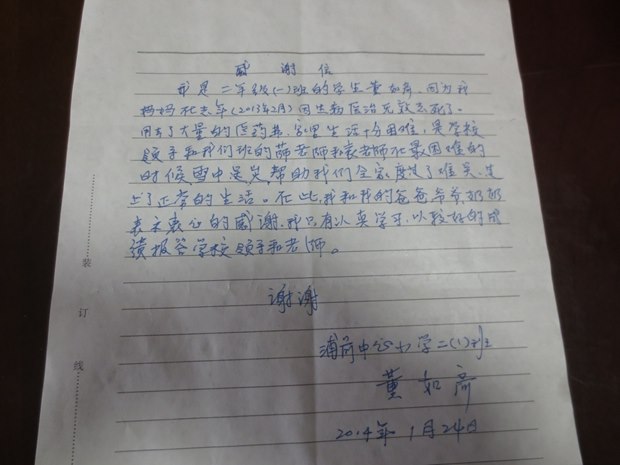 感谢信
我是二年级(一)班的学生董如奇,因为我
妈妈在去年(2013年2月)因生病医治无效去死了。
用去了大量的医药费,家里生活十分困难,是学校
领导和我们班的薛老师和袁老师在最困难的
时候雪中送炭帮助我们全家度过了难关,走
上了正常的生活。在此,我和我的爸爸爷爷奶奶
表示衷心的感谢,我只有认真学习,以较好的成
绩报答学校领导和老师。
谢谢
浦前中心小学二(1)班
董如奇
2014年1月24日
装
订
线